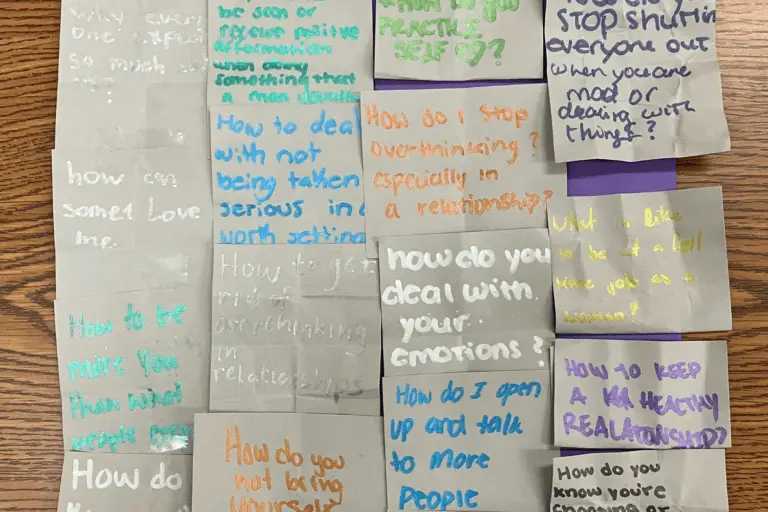 Why every
one
so much
be seen or
receive positive
affirmation
when doing
something that
a man
PRACTICE
SELF ♡?
STOP shuttin
everyone out
when you are
mad or
dealing with
things?
how can
some1 Love
me.
How to deal
with not
being taken
serious in a
work setting
How do I stop
overthinking?
especially in
a relationship?
What is like
to be at a
time job as a
woman?
How to get
rid of
overthinking
in
relationships
how do you
deal with
your
emotions?
How to be
more you
than what
people
HOW TO KEEP
A HEALTHY
REALATIONSHIP?
How do I open
up and talk
to more
people
How do you
not bring
yourself
How do
How do you
know you're
choosing or